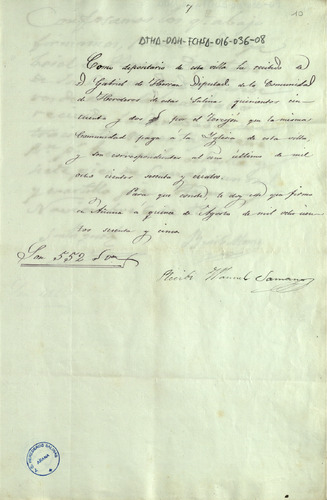 7
10
ATHA-DAH-FCHSA-016-036-08
Como depositario de esta villa he recibido de
D. Gabriel de Diputado de la Comunidad
de Herederos de estas Salinas quinientos cin-
cuenta y dos por el que la misma
Comunidad paga á la Iglesia de esta villa
y son correspondientes al año último de mil
ocho cientos sesenta y cuatro.
Para que conste, le doy este que firmo
en Añana a quince de Agosto de mil ocho cien-
tos sesenta y cinco.
Son 552
Recibí Manuel Samaniego